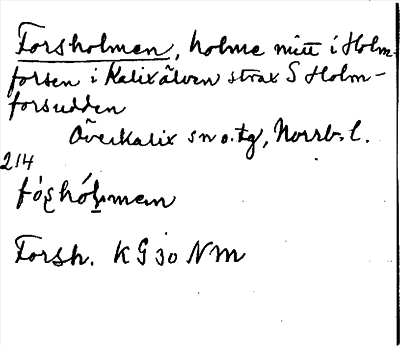 Forsholmen, holme mitt i Holm-
forsen i Kalixälven strax S Holm-
forsudden
Överkalix sn o. tg, Norrb. l.
214
Forsh. KG 30 NM